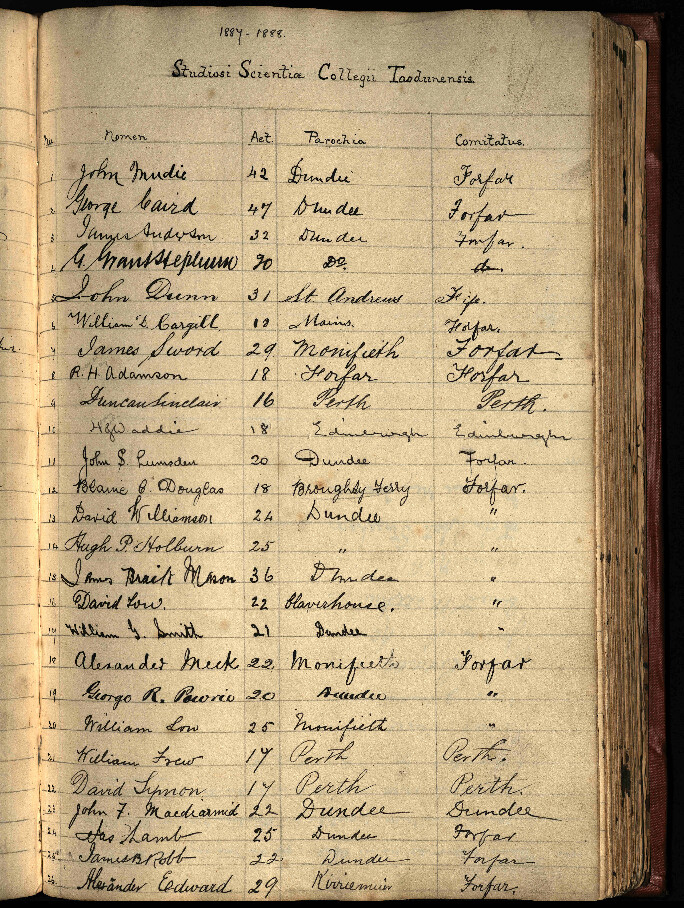 1887-1888.
Studiosi Scientiæ Collegii Taodunensis.
No. Nomen Aet. Parochia Comitatus.
1 John Mudie 42 Dundee Forfar
2 George Caird 47 Dundee Forfar
3 James Anderson 32 Dundee Forfar.
4 G. Grant Stephum 20 Do. do.
5 John Dunn 31 St. Andrews Fife.
6 William S. Cargill 19 Mains Forfar.
7 James Sword 29 Monifieth Forfar
8 R. H. Adamson 18 Forfar Forfar
9 Duncan Sinclair 16 Perth Perth.
10 Waddie 18 Edinburgh Edinburgh
11 John S. Lumsden 20 Dundee Forfar.
12 Blame C. Douglas 18 Broughty Ferry Forfar.
13 David Williamson 24 Dundee "
14 Hugh P. Holburn 25 " "
15 James Brait Mason 36 Dundee "
16 David Low. 22 Claverhouse. "
17 William G. Smith 21 Dundee "
18 Alexander Meek 22 Monifieth Forfar
19 George R. Powrie 20 Dundee "
20 William Low 25 Monifieth "
21 William Frew 17 Perth Perth.
22 David Symon 17 Perth Perth.
23 John F. Macdiarmid 22 Dundee Dundee
24 Jas Lamb 25 Dundee Forfar
25 James B Robb 22 Dundee Forfar
26 Alexander Edward 29 Kirriemuir Forfar.